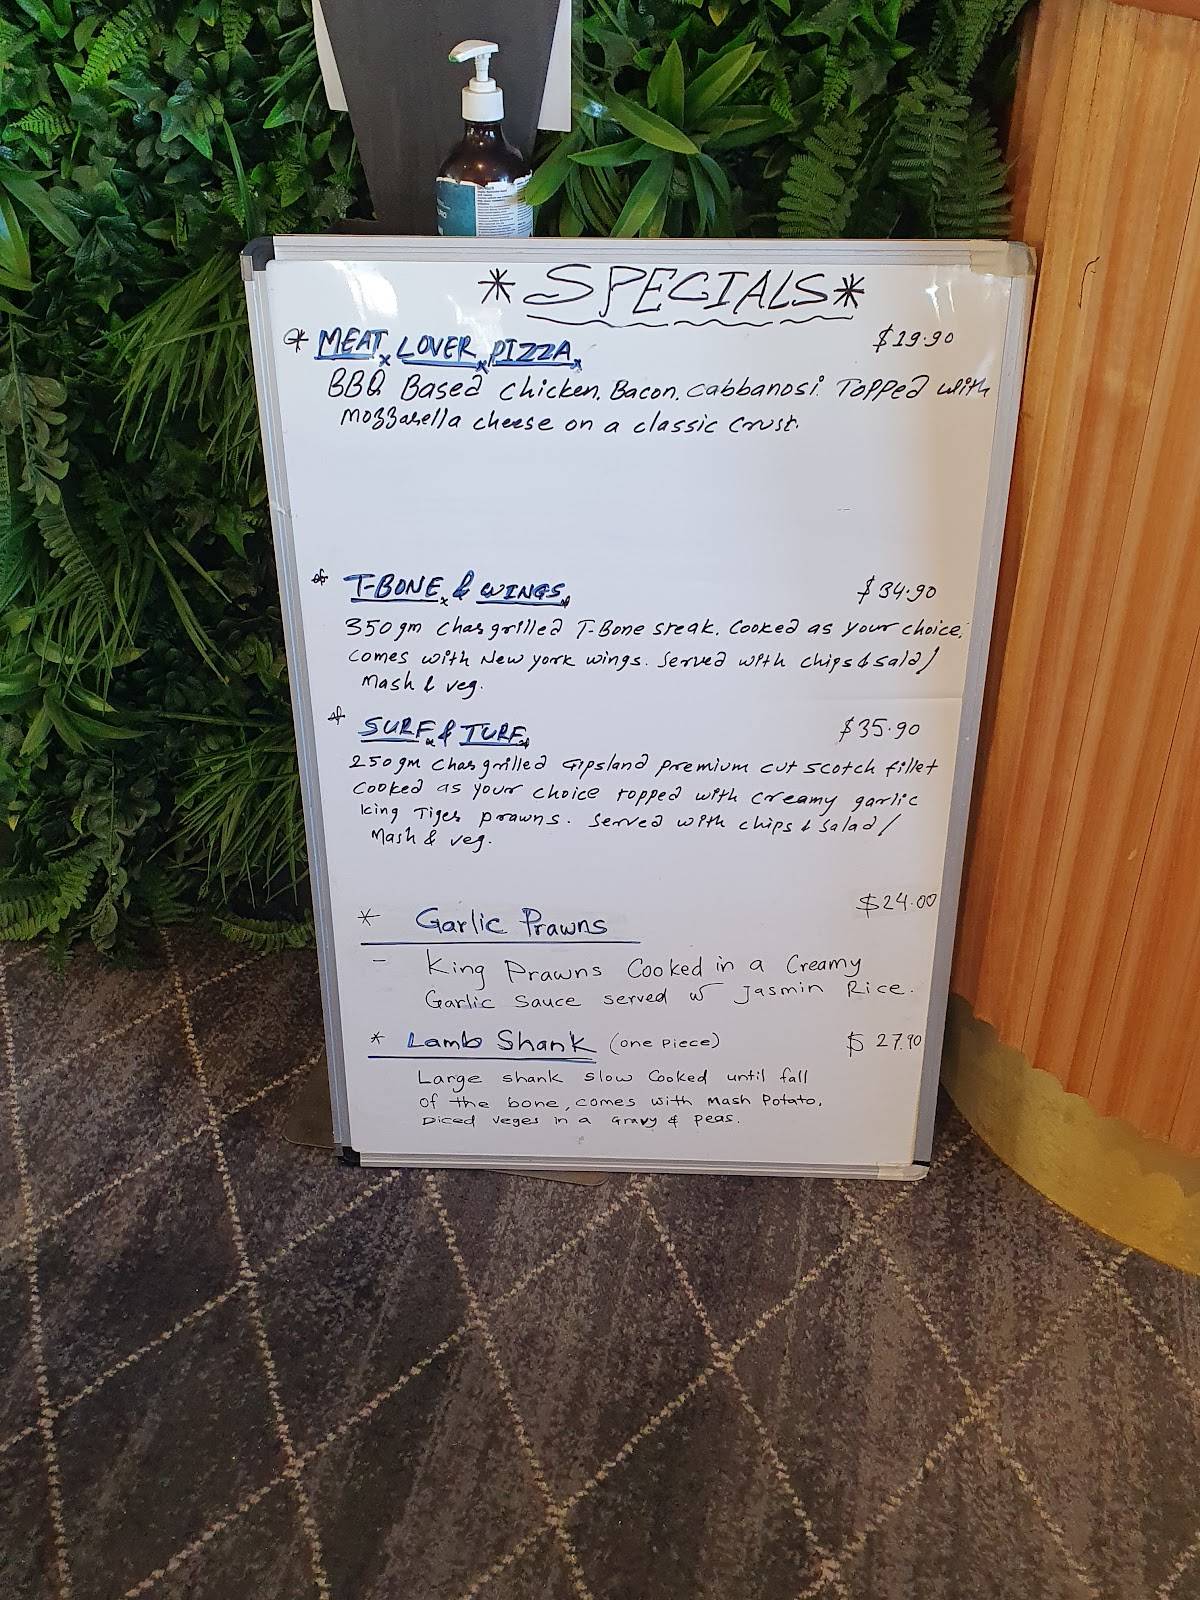 * SPECIALS *
* MEAT LOVER PIZZA $19.90
BBQ Based chicken, Bacon, cabbanosi Topped with
mozzarella cheese on a classic crust.
* T-BONE & WINGS $34.90
350gm chargrilled T-Bone steak, Cooked as your choice,
comes with New york wings. Served with chips & salad/
Mash & veg.
* SURF & TURF $35.90
250gm chargrilled Gipsland premium cut scotch fillet
cooked as your choice topped with creamy garlic
king Tiger prawns. Served with chips & salad/
Mash & veg.
* Garlic Prawns $24.00
- King Prawns Cooked in a Creamy
Garlic Sauce served w Jasmin Rice.
* Lamb Shank (one piece) $27.90
Large shank slow cooked until fall
of the bone, comes with mash potato,
Diced veges in a gravy & peas.